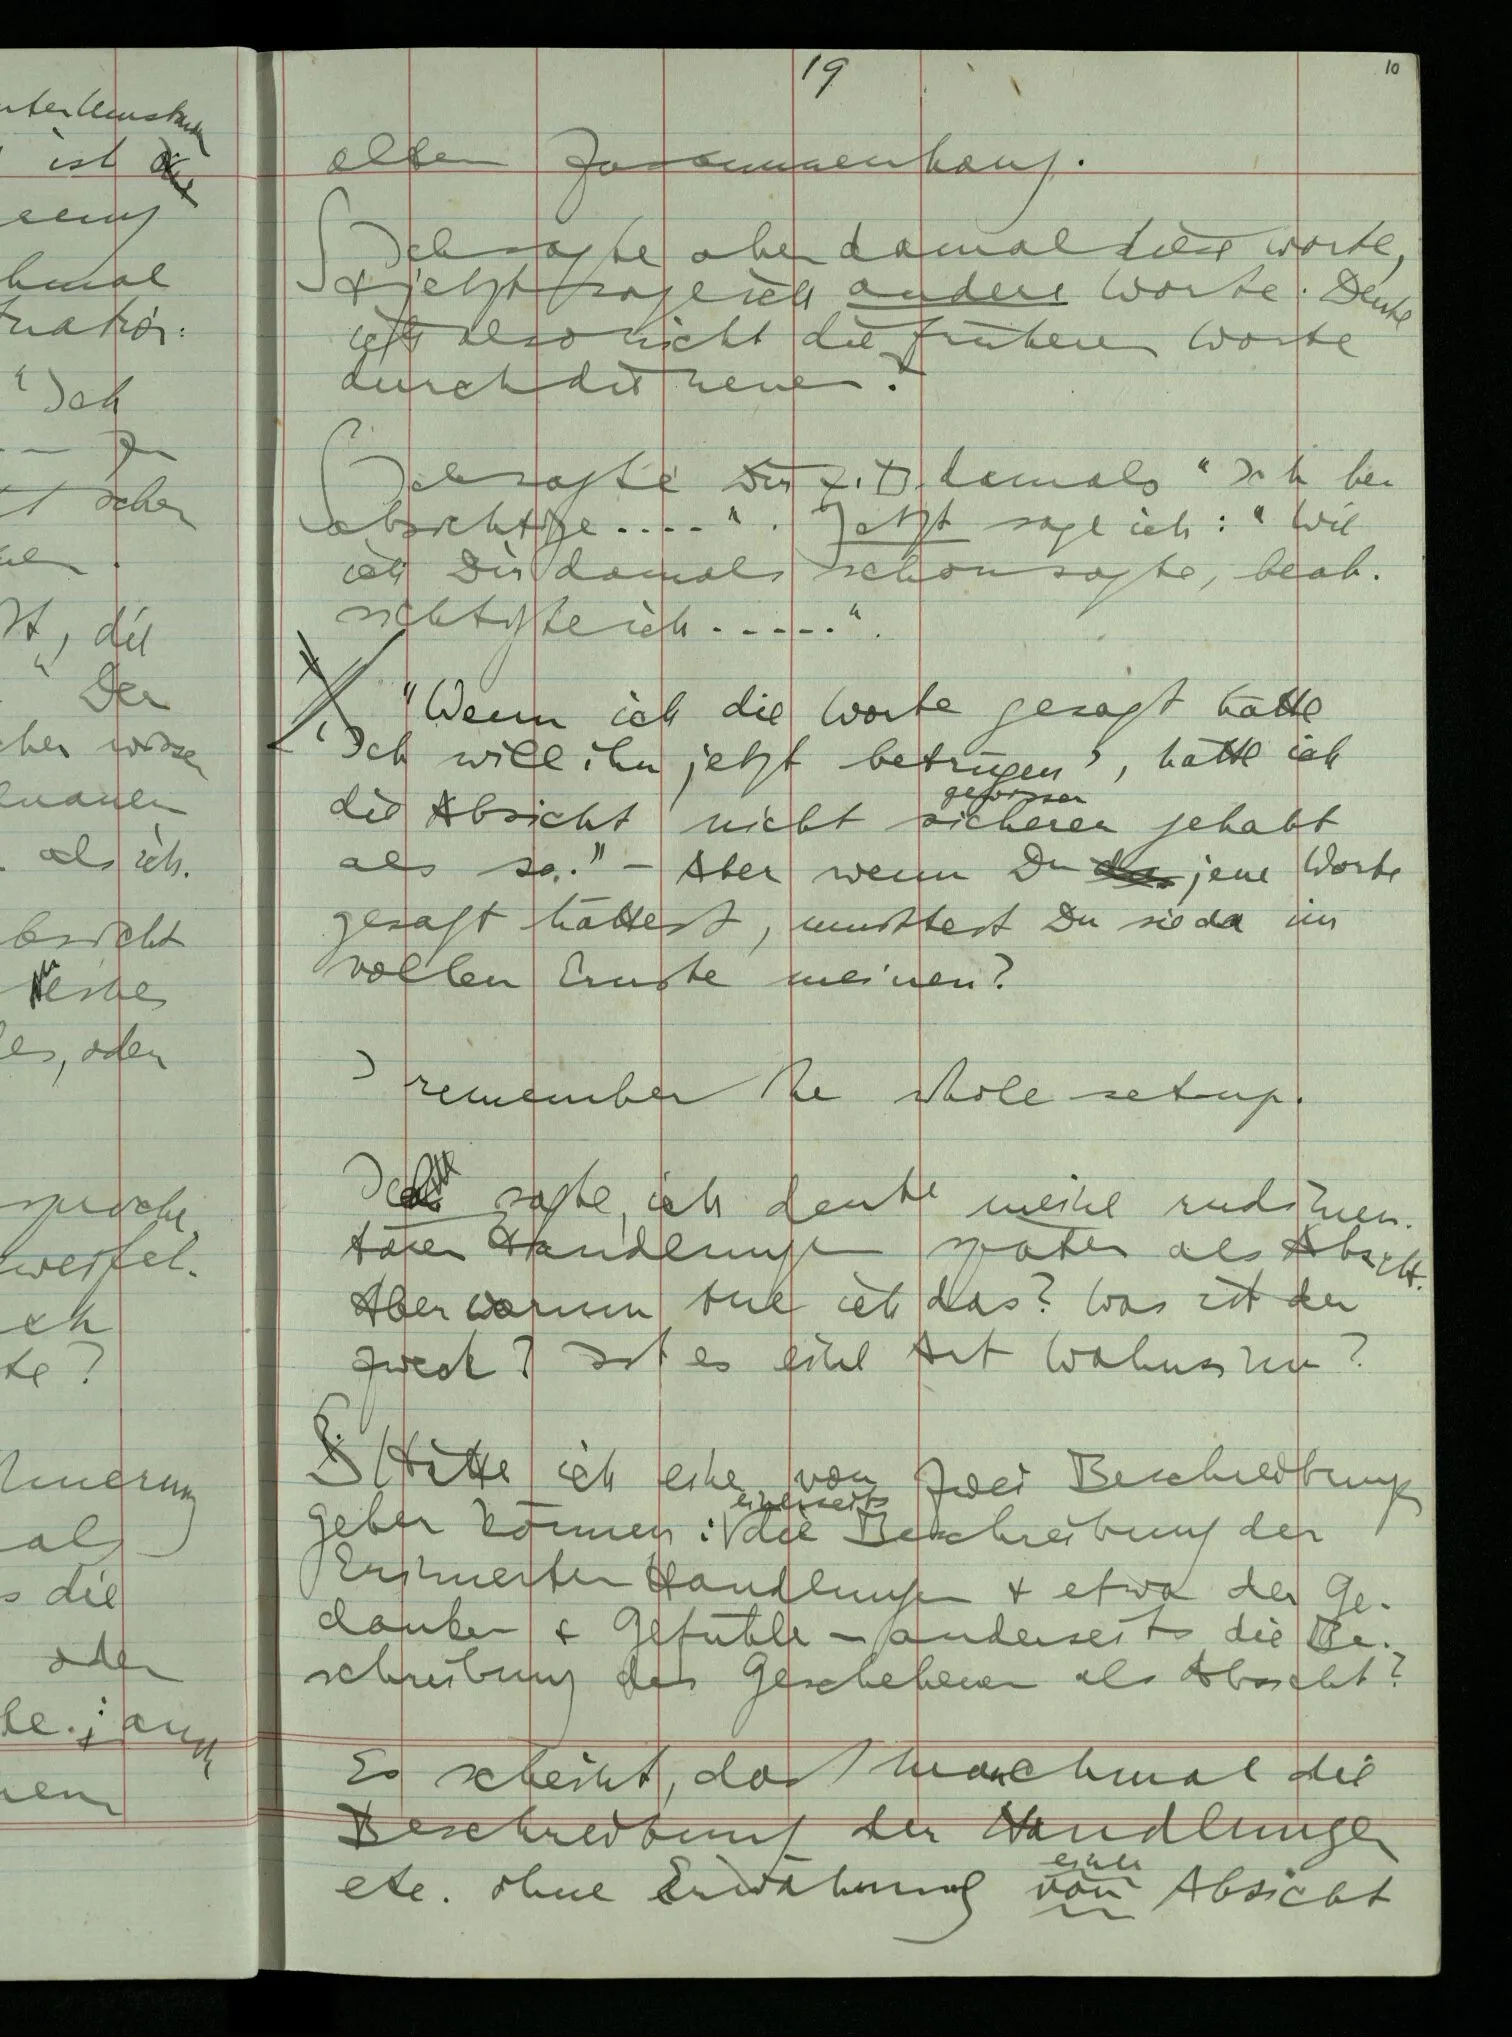 nterUmständen
ist
hmal
"Ich
schen
, die
" Der
cher wissen
als ich.
bsicht
es, oder
sprache,
zweifel.
ich
te?
innerung
als
s die
oder
19
10
alten Zusammenhang.
∫ Ich sagte aber damals diese Worte,
& jetzt sage ich andere Worte. Deute
ich also nicht die früheren Worte
durch die neuen?
∫ Ich sagte Dir z.B. damals "Ich be
absichtige ....". Jetzt sage ich: "Wie
ich Dir damals schon sagte, beab-
sichtigte ich ......".
"Wenn ich die Worte gesagt hätte
'Ich will ihn jetzt betrügen', hätte ich
gewisser
die Absicht nicht sicherer gehabt
als so." – Aber wenn Du jene Worte
gesagt hättest, musstest Du sie da im
vollen Ernste meinen?
I remember the whole set-up.
sagte, ich deute meine rudimen-
tären Handlungen später als Absicht.
Aber warum tue ich das? Was ist der
Zweck? Ist es eine Art Wahnsinn?
Hätte ich eine von zwei Beschreibungen
einerseits
geben können: die Beschreibung der
Erinnerten Handlungen & etwa der Ge-
danken & Gefühle – anderseits die Be-
schreibung des Geschehenen als Absicht?
Es scheint, daß manchmal die
Beschreibung der Handlungen
einer
etc. ohne Erwähnung von Absicht